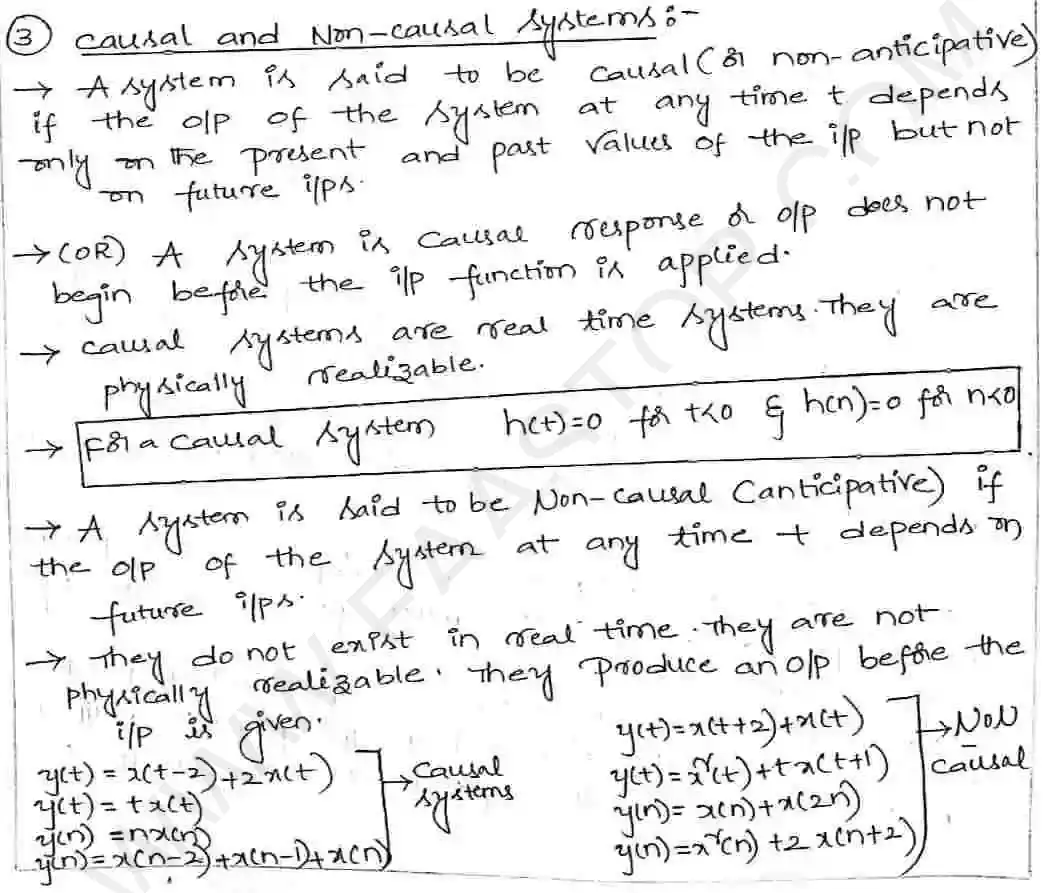 ③ Causal and Non-causal Systems :-
→ A system is said to be causal (or non-anticipative)
if the o/p of the system at any time t depends
only on the present and past values of the i/p but not
on future i/ps.
→ (OR) A system is causal response or o/p does not
begin before the i/p function is applied.
→ causal systems are real time systems. They are
physically realizable.
→ For a causal system h(t)=0 for t<0 & h(n)=0 for n<0
→ A system is said to be Non-causal (anticipative) if
the o/p of the system at any time t depends on
future i/ps.
→ They do not exist in real time. They are not
physically realizable. They produce an o/p before the
i/p is given.
y(t) = x(t-2)+2x(t)
y(t) = t x(t)
y(n) = nx(n)
y(n)=x(n-2)+x(n-1)+x(n)
→ Causal
systems
y(t)=x(t+2)+x(t)
y(t)=x²(t)+tx(t+1)
y(n)= x(n)+x(2n)
y(n)=x²(n)+2x(n+2)
→ NON
-
causal